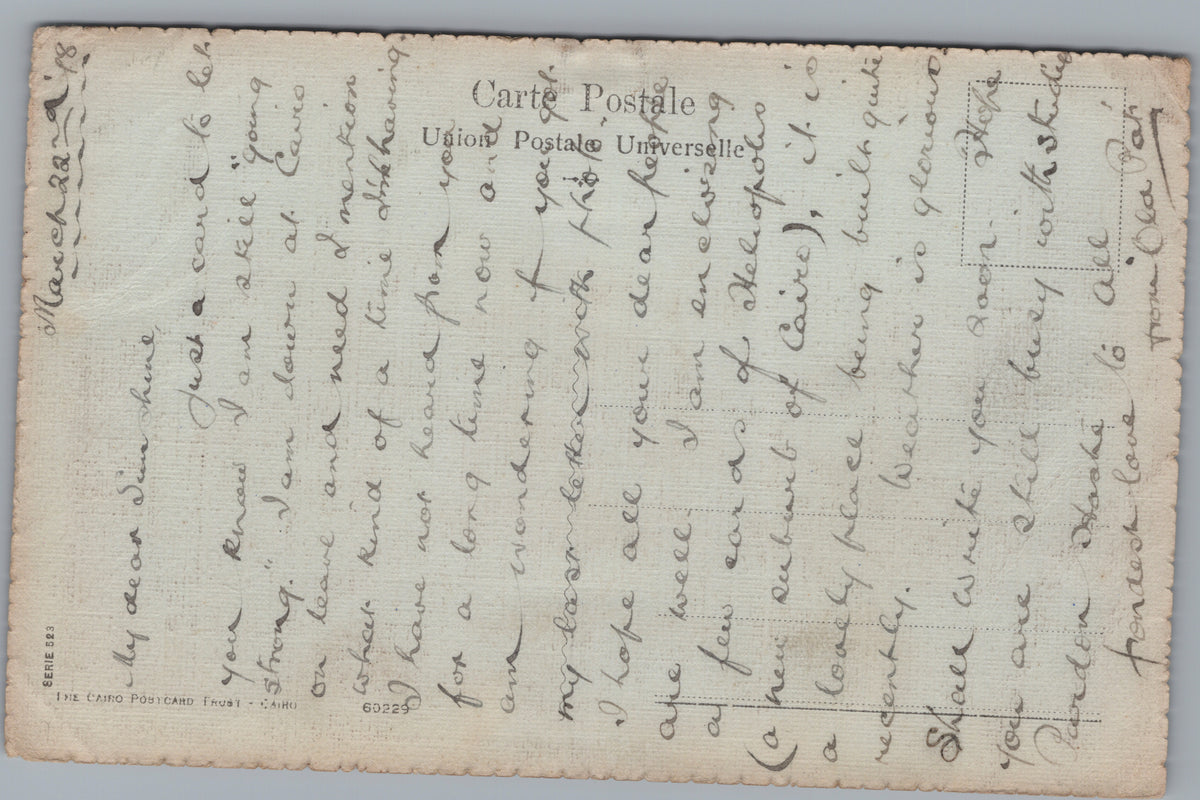 March 22nd '18
My dear Sunshine,
Just a card to let
you know I am still "going
strong." I am down at Cairo
on leave and need I mention
what kind of a time I'm having.
I have not heard from you
for a long time now and
am wondering if you got
my last letter with photo.
I hope all your dear people
are well. I am enclosing
a few cards of Heliopolis
(a new suburb of Cairo), it is
a lovely place being built quite
recently. Weather is glorious.
Shall write you soon. Hope
you are still busy with studies
Pardon haste to all
fondest love from Pat
Carte Postale
Union Postale Universelle
SERIE 523
THE CAIRO POSTCARD TRUST - CAIRO
60229